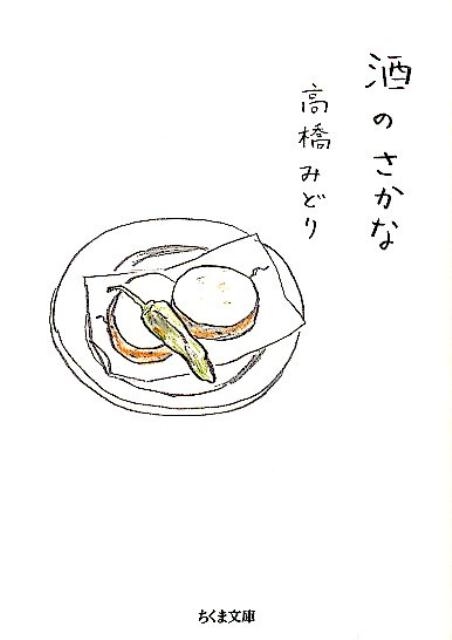 酒のさかな
高橋みどり
ちくま文庫